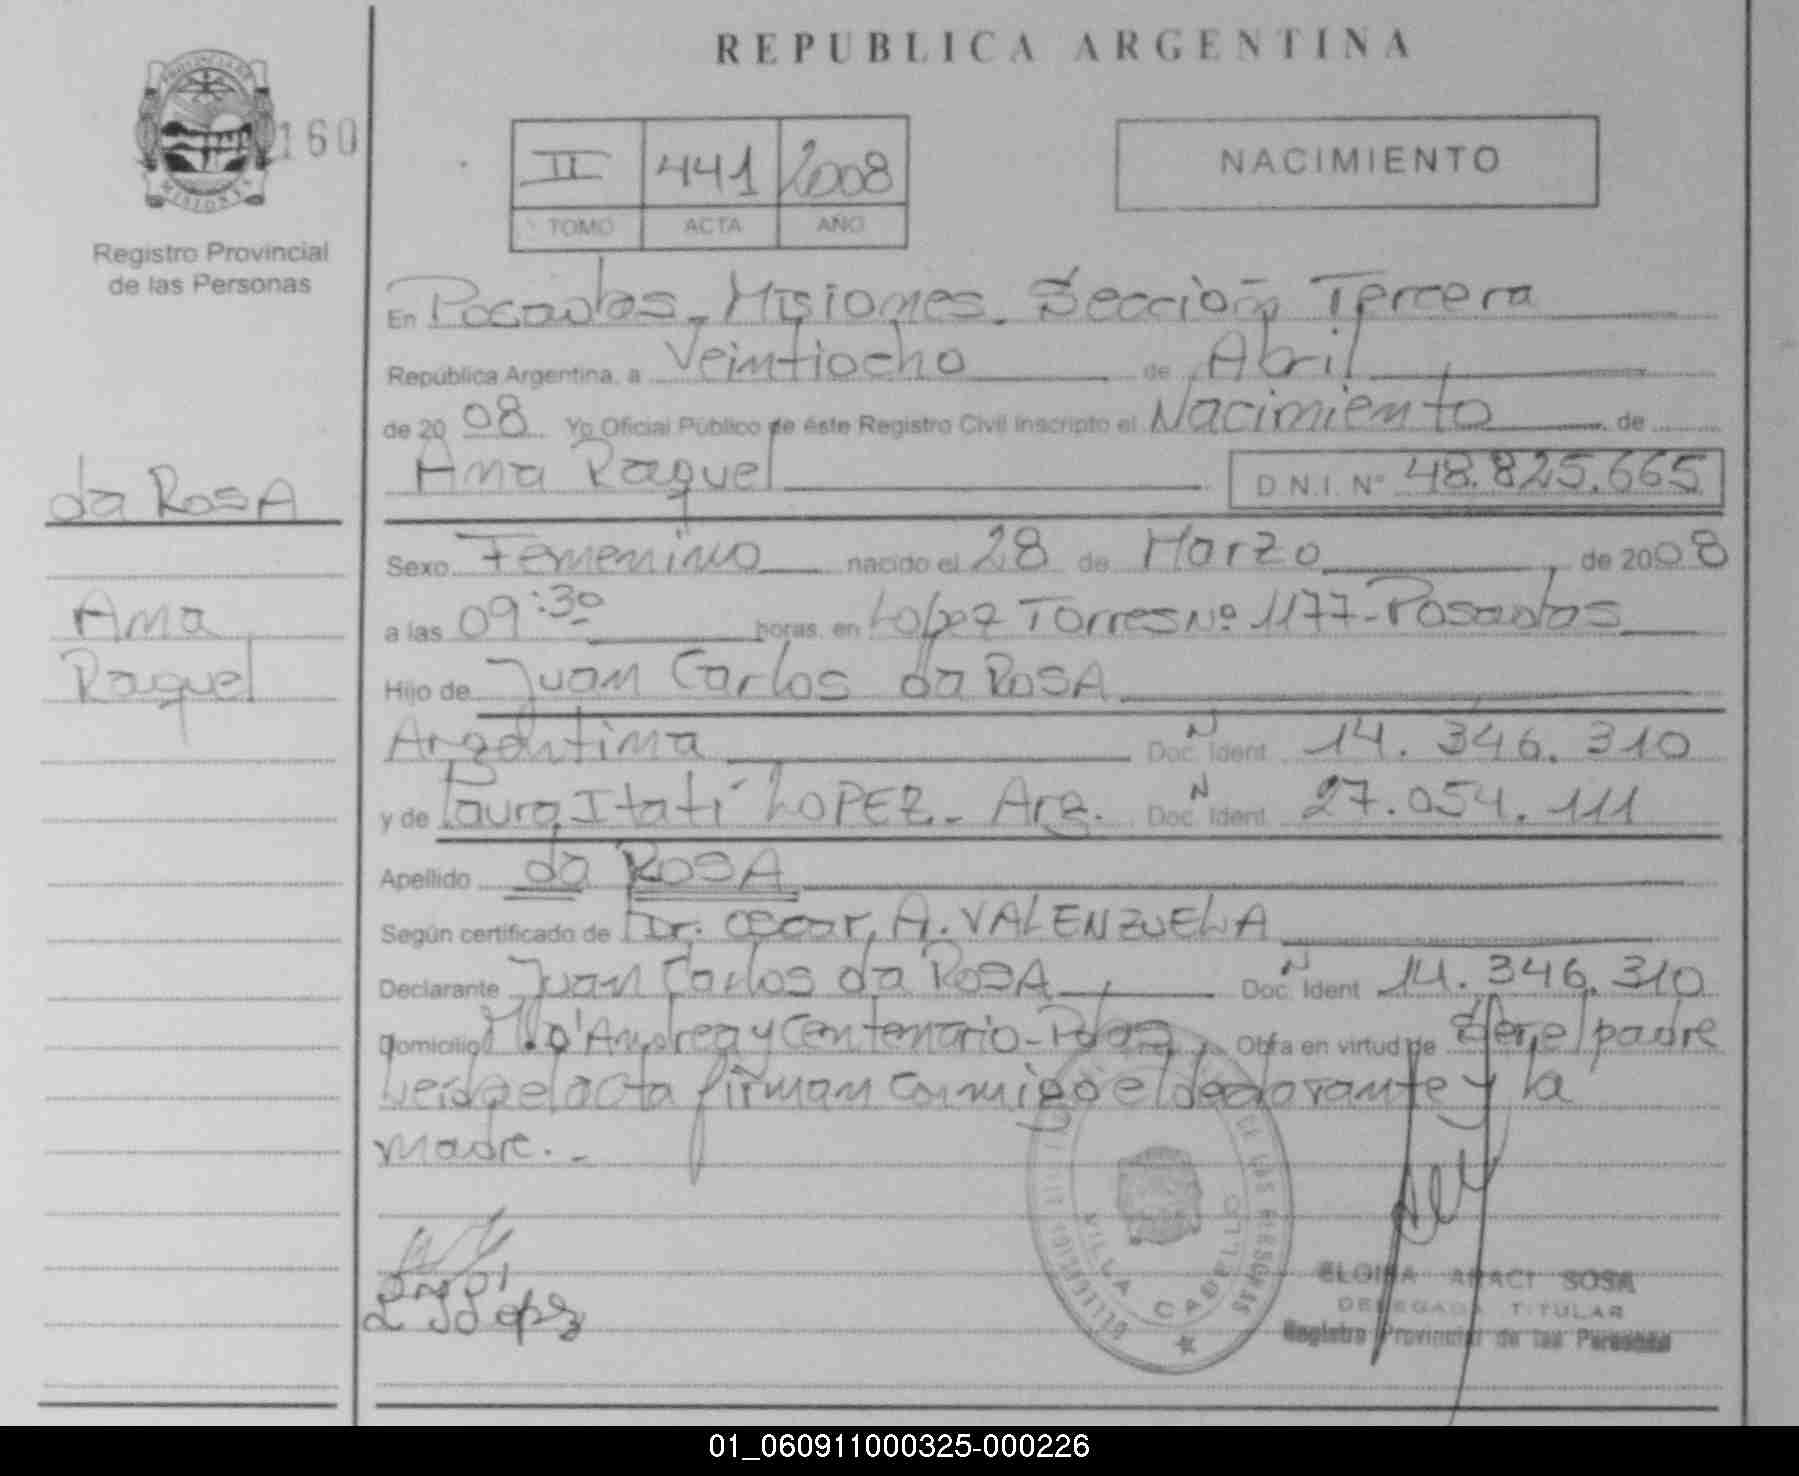 REPUBLICA ARGENTINA
PROVINCIA DE
MISIONES
160
II 441 2008
TOMO ACTA AÑO
NACIMIENTO
Registro Provincial
de las Personas
En Posadas - Misiones. Sección Tercera
República Argentina, a Veintiocho de Abril
de 2008 Yo Oficial Público de éste Registro Civil Inscripto el Nacimiento de
Ana Raquel D.N.I. Nº 48.825.665
da ROSA
Sexo Femenino nacido el 28 de Marzo de 2008
Ana
a las 09:30 horas, en Lopez Torres Nº 1177-Posadas
Raquel
Hijo de Juan Carlos da ROSA
Argentina Doc. Ident. N 14.346.310
y de Laura Itatí LOPEZ - Arg. Doc. Ident. N 27.054.111
Apellido da ROSA
Según certificado de Dr. Oscar A. VALENZUELA
Declarante Juan Carlos da ROSA Doc. Ident N 14.346.310
Domicilio D'Andrea y Centenario - Pdas Obra en virtud de Ser el padre
Leida el acta firman conmigo el declarante y la
madre.-
DE LAS PERSONAS
VILLA CABELLO
L I Lopez
ARACI SOSA
DELEGADA TITULAR
Registro Provincial de las Personas
01_060911000325-000226